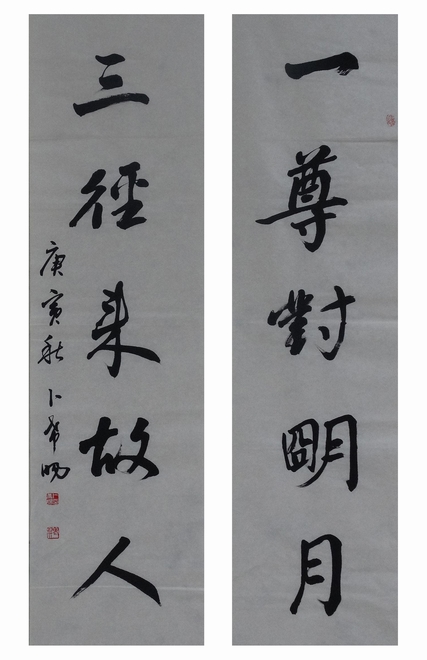 一尊對明月
三徑来故人
庚寅秋卜希暘